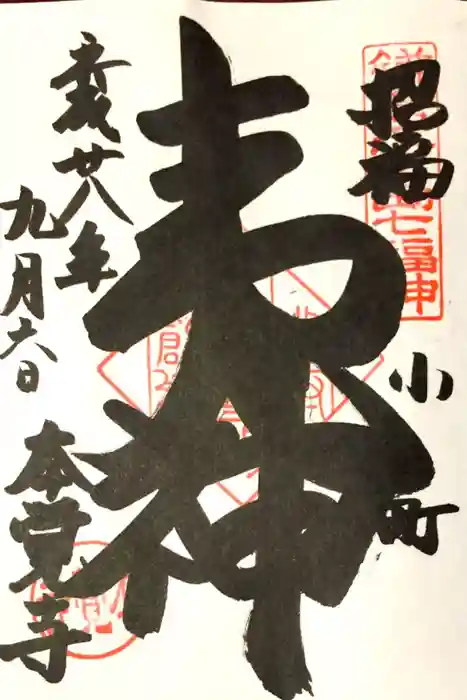 七福神
招福
小町
夷神
平成廿八年
九月六日
本覚寺